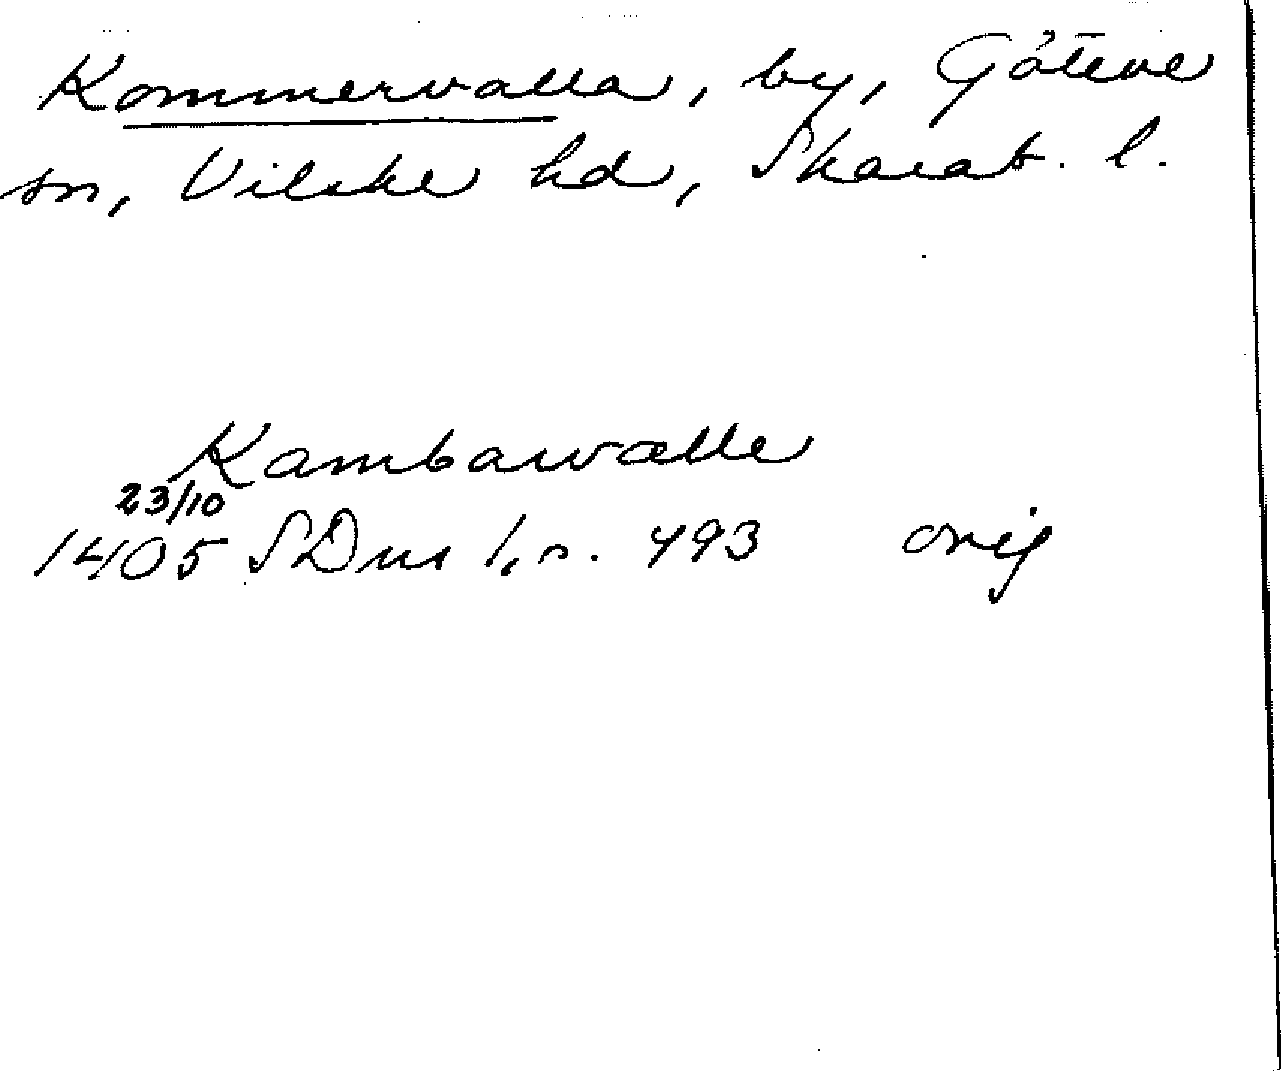 Kommervalla, by, Göteve
sn, Vilske hd, Skarab. l.
Kambawalle
23/10
1405 SDns 1, s. 493 orig